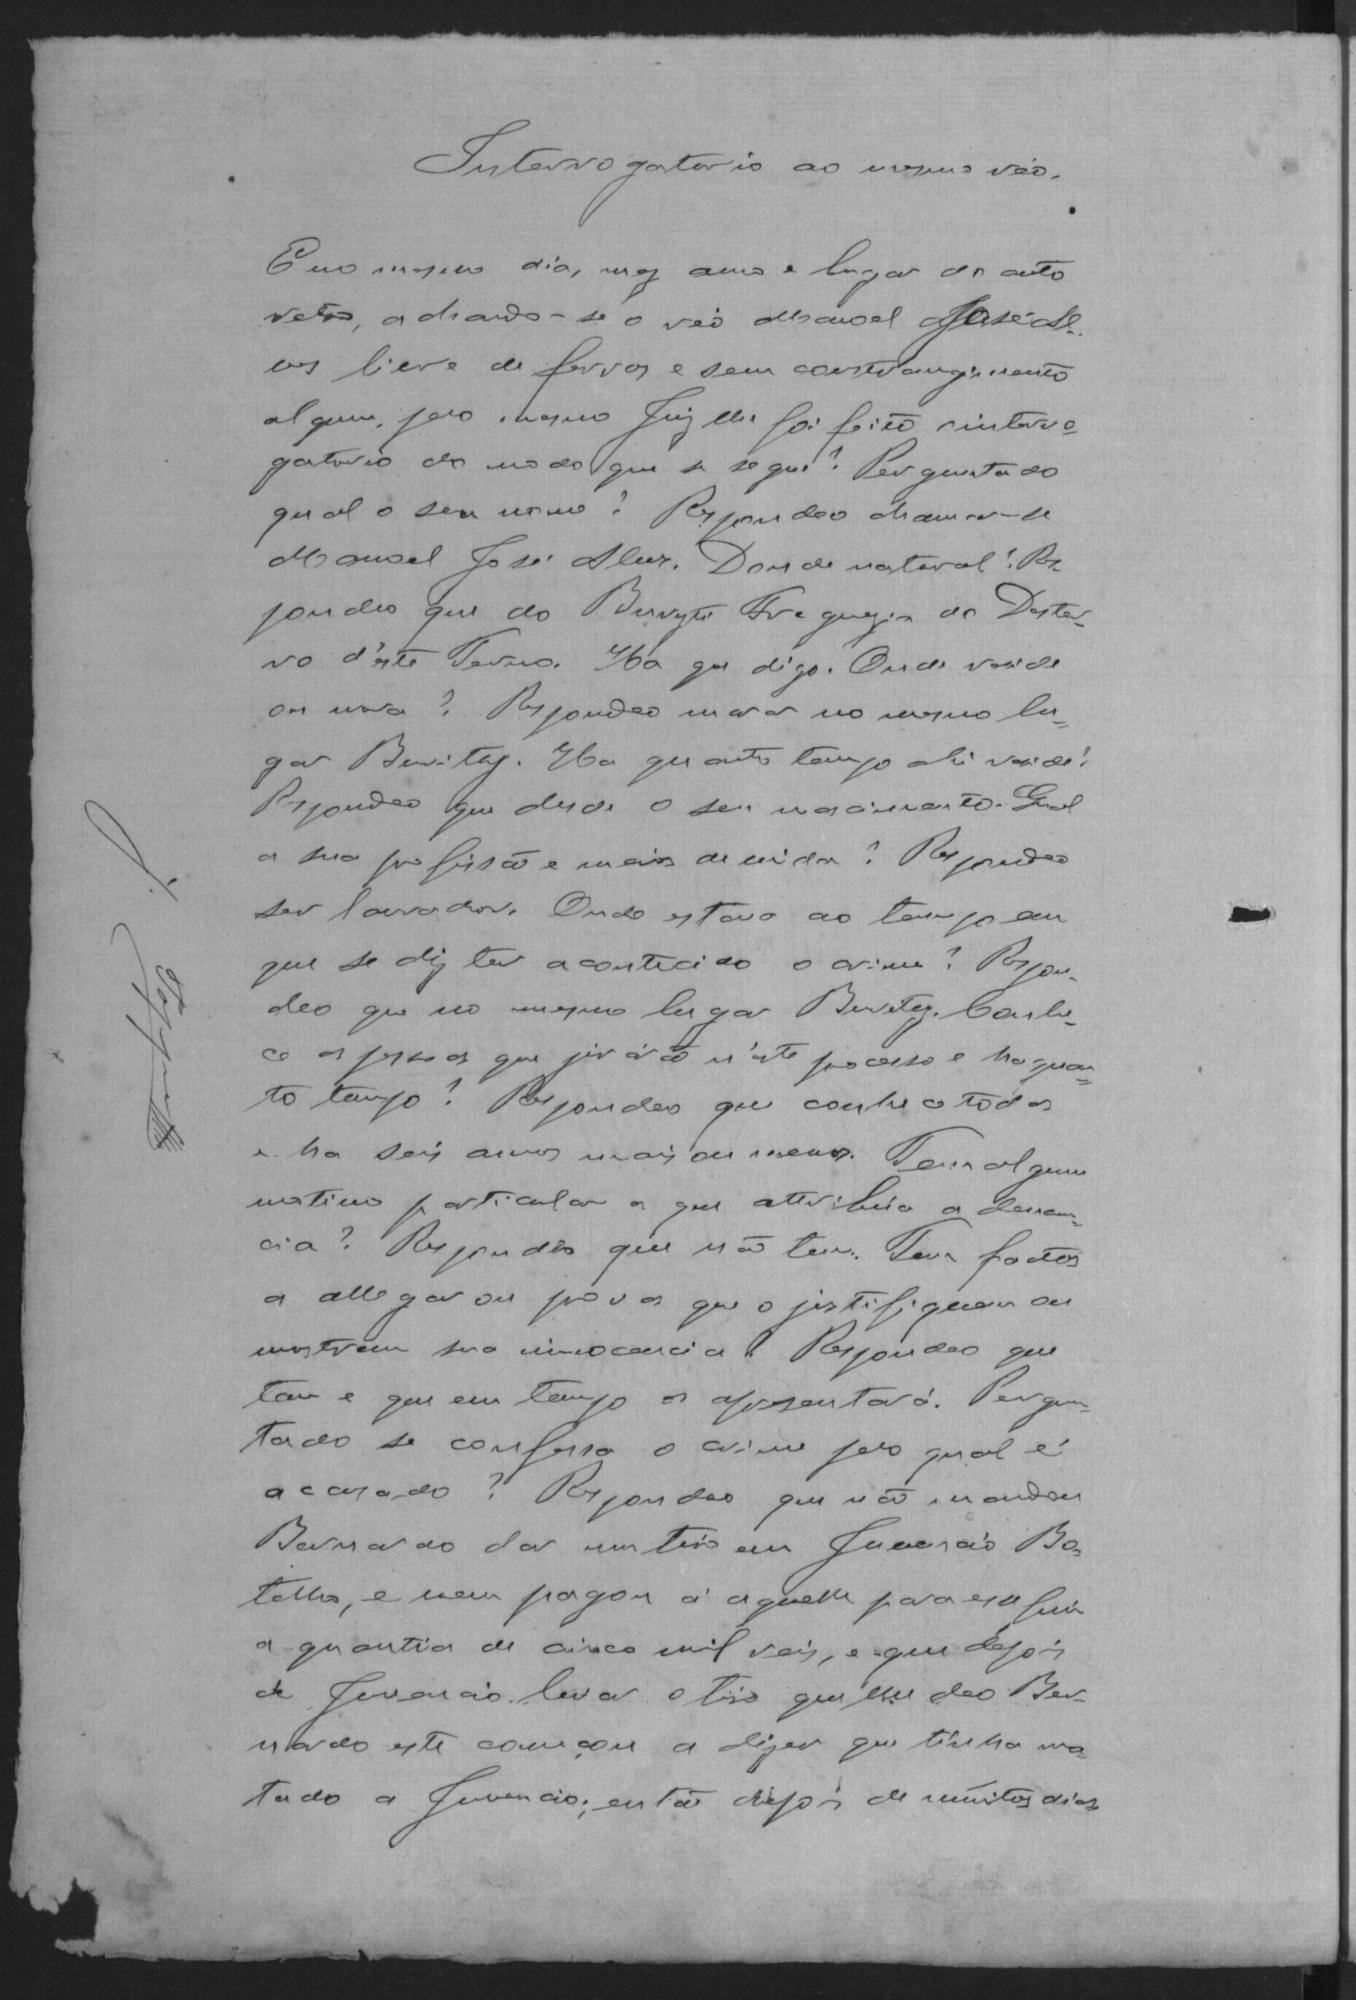 Interrogatorio ao mesmo réo.
E no mesmo dia, mez anno e lugar do auto
retro, achando-se o reó Manoel José Al-
ves livre de ferros e sem constrangimento
algum, pelo mesmo Juiz lhe foi feito o interro=
gatorio do modo que se segue: Perguntado
qual o seu nome? Respondeo chamar-se
Manoel José Alves. Donde natural? Res
pondeo que do Burity Freguezia do Dester-
ro d'este Termo. Ha que digo. Onde reside
ou mora? Respondeo morar no mesmo lu=
gar Burity. Ha quanto tempo ahi reside?
Respondeo que desde o seu nascimento. Qual
a sua profissão e meios de vida? Respondeo
ser lavrador. Onde estava ao tempo em
que se diz ter acontecido o crime? Respon-
deo que no mesmo lugar Burity. Conhe-
ce as pessoas que jurárão n'este processo e ha quan=
to tempo? Respondeo que conhece todas
e ha seis annos mais ou menos. Tem algum
motivo particular a que attribúa a denun-
cia? Respondeo que não tem. Tem factos
a allegar ou provas que o justifiquem ou
mostrem sua innocencia? Respondeo que
tem e que em tempo as apresentará. Pergun-
tado se confessa o crime pelo qual é
accusado? Respondeo que não mandou
Bernardo dar um tiro em Juvencio Bo-
telho, e nem pagou a aquelle para esse fim
a quantia de cinco mil reis, e que depois
de Juvencio levar o tiro que lhe deo Ber-
nardo este começou a dizer que tinha ma-
tado a Juvencio; então depois de muitos dias